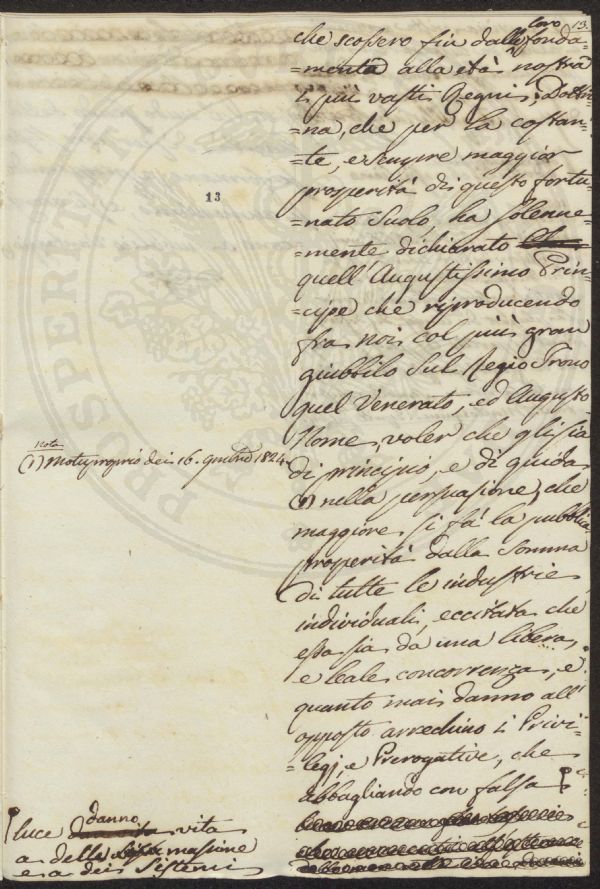 13.
loro
che scossero fin dalle fonda=
=menta alla età nostra
i più vasti Regni; Dottri=
=na, che per la costan=
=te, e sempre maggior
prosperità di questo fortu=
=nato Suolo, ha solenne=
=mente dichiarato
quell'Augustissimo Prin=
=cipe che riproducendo
fra noi col più gran
giubbilo sul Regio Trono
quel Venerato, ed Augusto
Nome, voler che gli sia
di principio, e di guida
(1) nella persuasione, che
maggiore si fà la pubblica
prosperità dalla Somma
di tutte le industrie
individuali, eccitata che
essa sia da una libera,
e leale concorrenza, e
quanto mai danno all'
opposto arrechino i Privi=
=legj, e Prerogative, che
abbagliando con falsa
13
nota
(1) Motuproprio dei 16. 1824
luce danno vita
a delle massime
e a dei Sistemi
PROSPERITATI